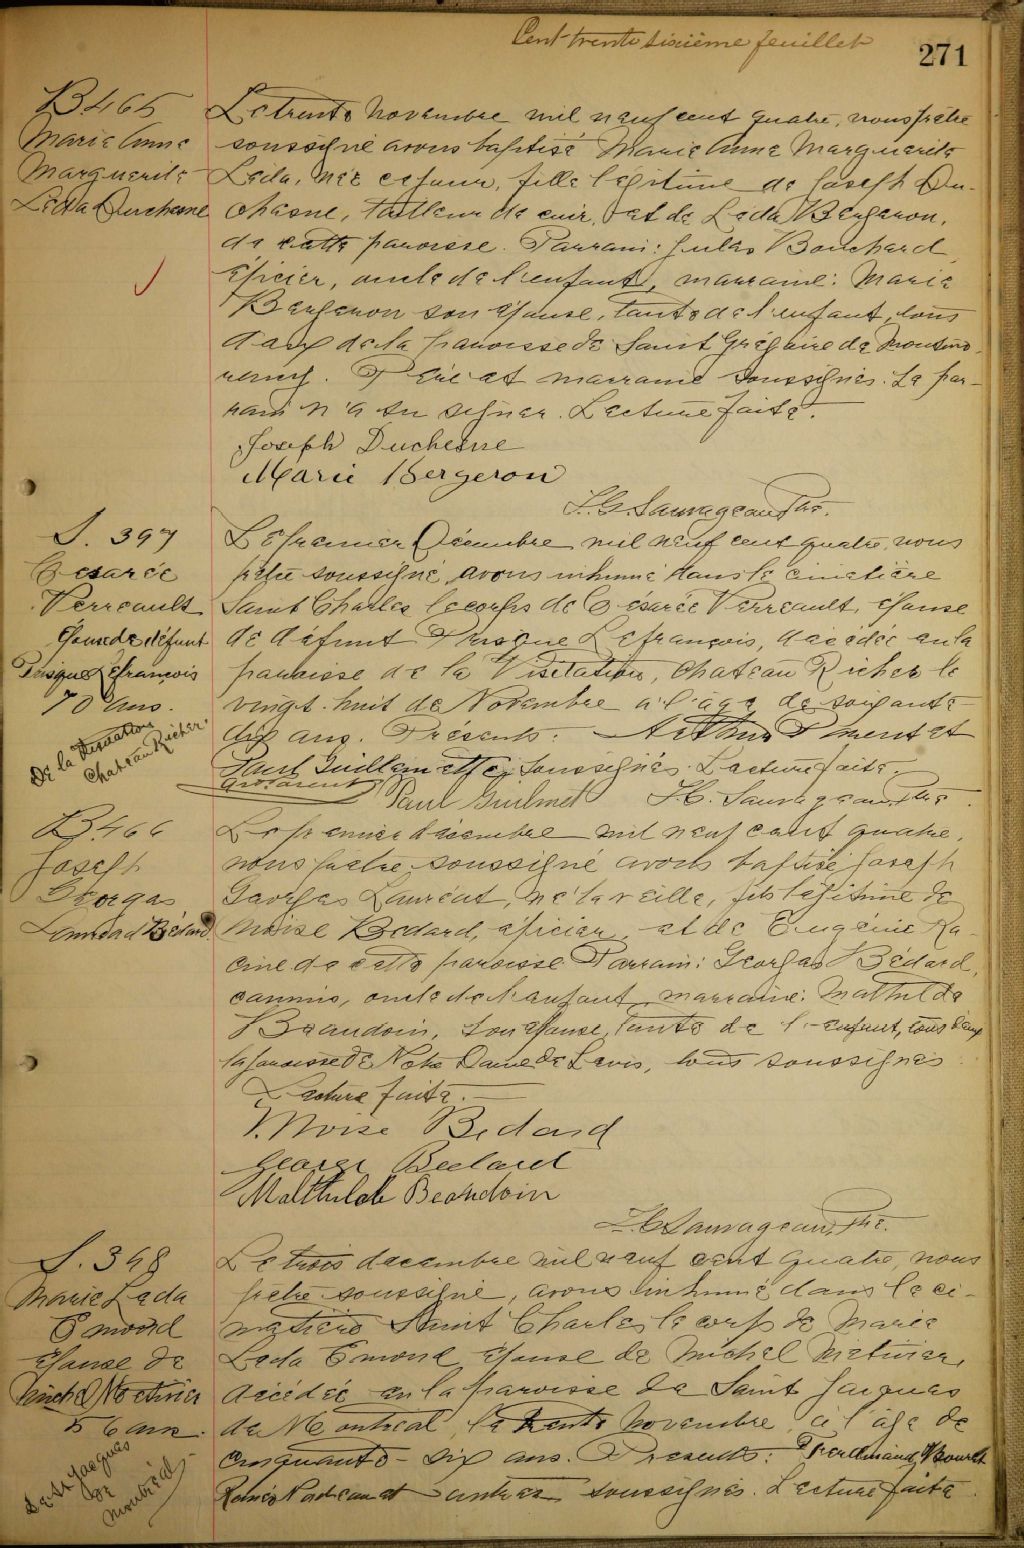 Cent trente sixième feuillet
271
B. 465
Marie Anne
Marguerite
Léda Duchesne
Le trente Novembre mil neuf cent quatre, nous prêtre
soussigné avons baptisé Marie Anne Marguerite
Léda, née ce jour, fille légitime de Joseph Du-
chesne, tailleur de cuir, et de Léda Bergeron,
de cette paroisse. Parrain: Jules Bouchard,
épicier, oncle de l'enfant, marraine: Marie
Bergeron son épouse, tante de l'enfant, tous
deux de la paroisse de Saint Grégoire de Montmo-
rency. Père et marraine soussignés. Le par-
rain n'a su signer. Lecture faite.
Joseph Duchesne
Marie Bergeron
Sauvageau Ptre.
S. 397
Césarée
Verreault
Épouse de défunt
Prisque Lefrançois
70 ans.
De la Visitation
Chateau Richer.
Le premier Décembre mil neuf cent quatre, nous
prêtre soussigné, avons inhumé dans le cimetière
Saint Charles le corps de Césarée Verreault, épouse
de défunt Prisque Lefrançois, décédée en la
paroisse de la Visitation, Chateau Richer le
vingt-huit de Novembre à l'âge de soixante-
dix ans. Présents: Arthur et
Paul Guillemette, soussignés. Lecture faite.
Paul Guilmet Sauvageau Ptre.
B. 466
Joseph
Georges
Bédard
Le premier décembre mil neuf cent quatre,
nous prêtre soussigné avons baptisé Joseph
Georges Lauréat, né la veille, fils légitime de
Moïse Bédard, épicier, et de Eugénie Ra-
cine de cette paroisse. Parrain: Georges Bédard,
commis, oncle de l'enfant, marraine: Mathilde
Beaudoin, son épouse, tante de l'enfant, tous deux
la paroisse de Notre Dame de Levis, tous soussignés.
Lecture faite.
Moise Bedard
George Bedard
Malthilde Beaudoin
Sauvageau, Ptre.
S. 398
Marie Léda
Emond
épouse de
Michel Métivier
56 ans.
De St Jacques
de
Montréal
Le trois decembre mil neuf cent quatre, nous
prêtre soussigné, avons inhumé dans le ci-
metière Saint Charles le corps de Marie
Léda Emond épouse de Michel Métivier,
décédée en la paroisse de Saint Jacques
de Montréal, le trente Novembre, à l'âge de
cinquante-six ans. Présents: Ferdinand
et autres soussignés. Lecture faite